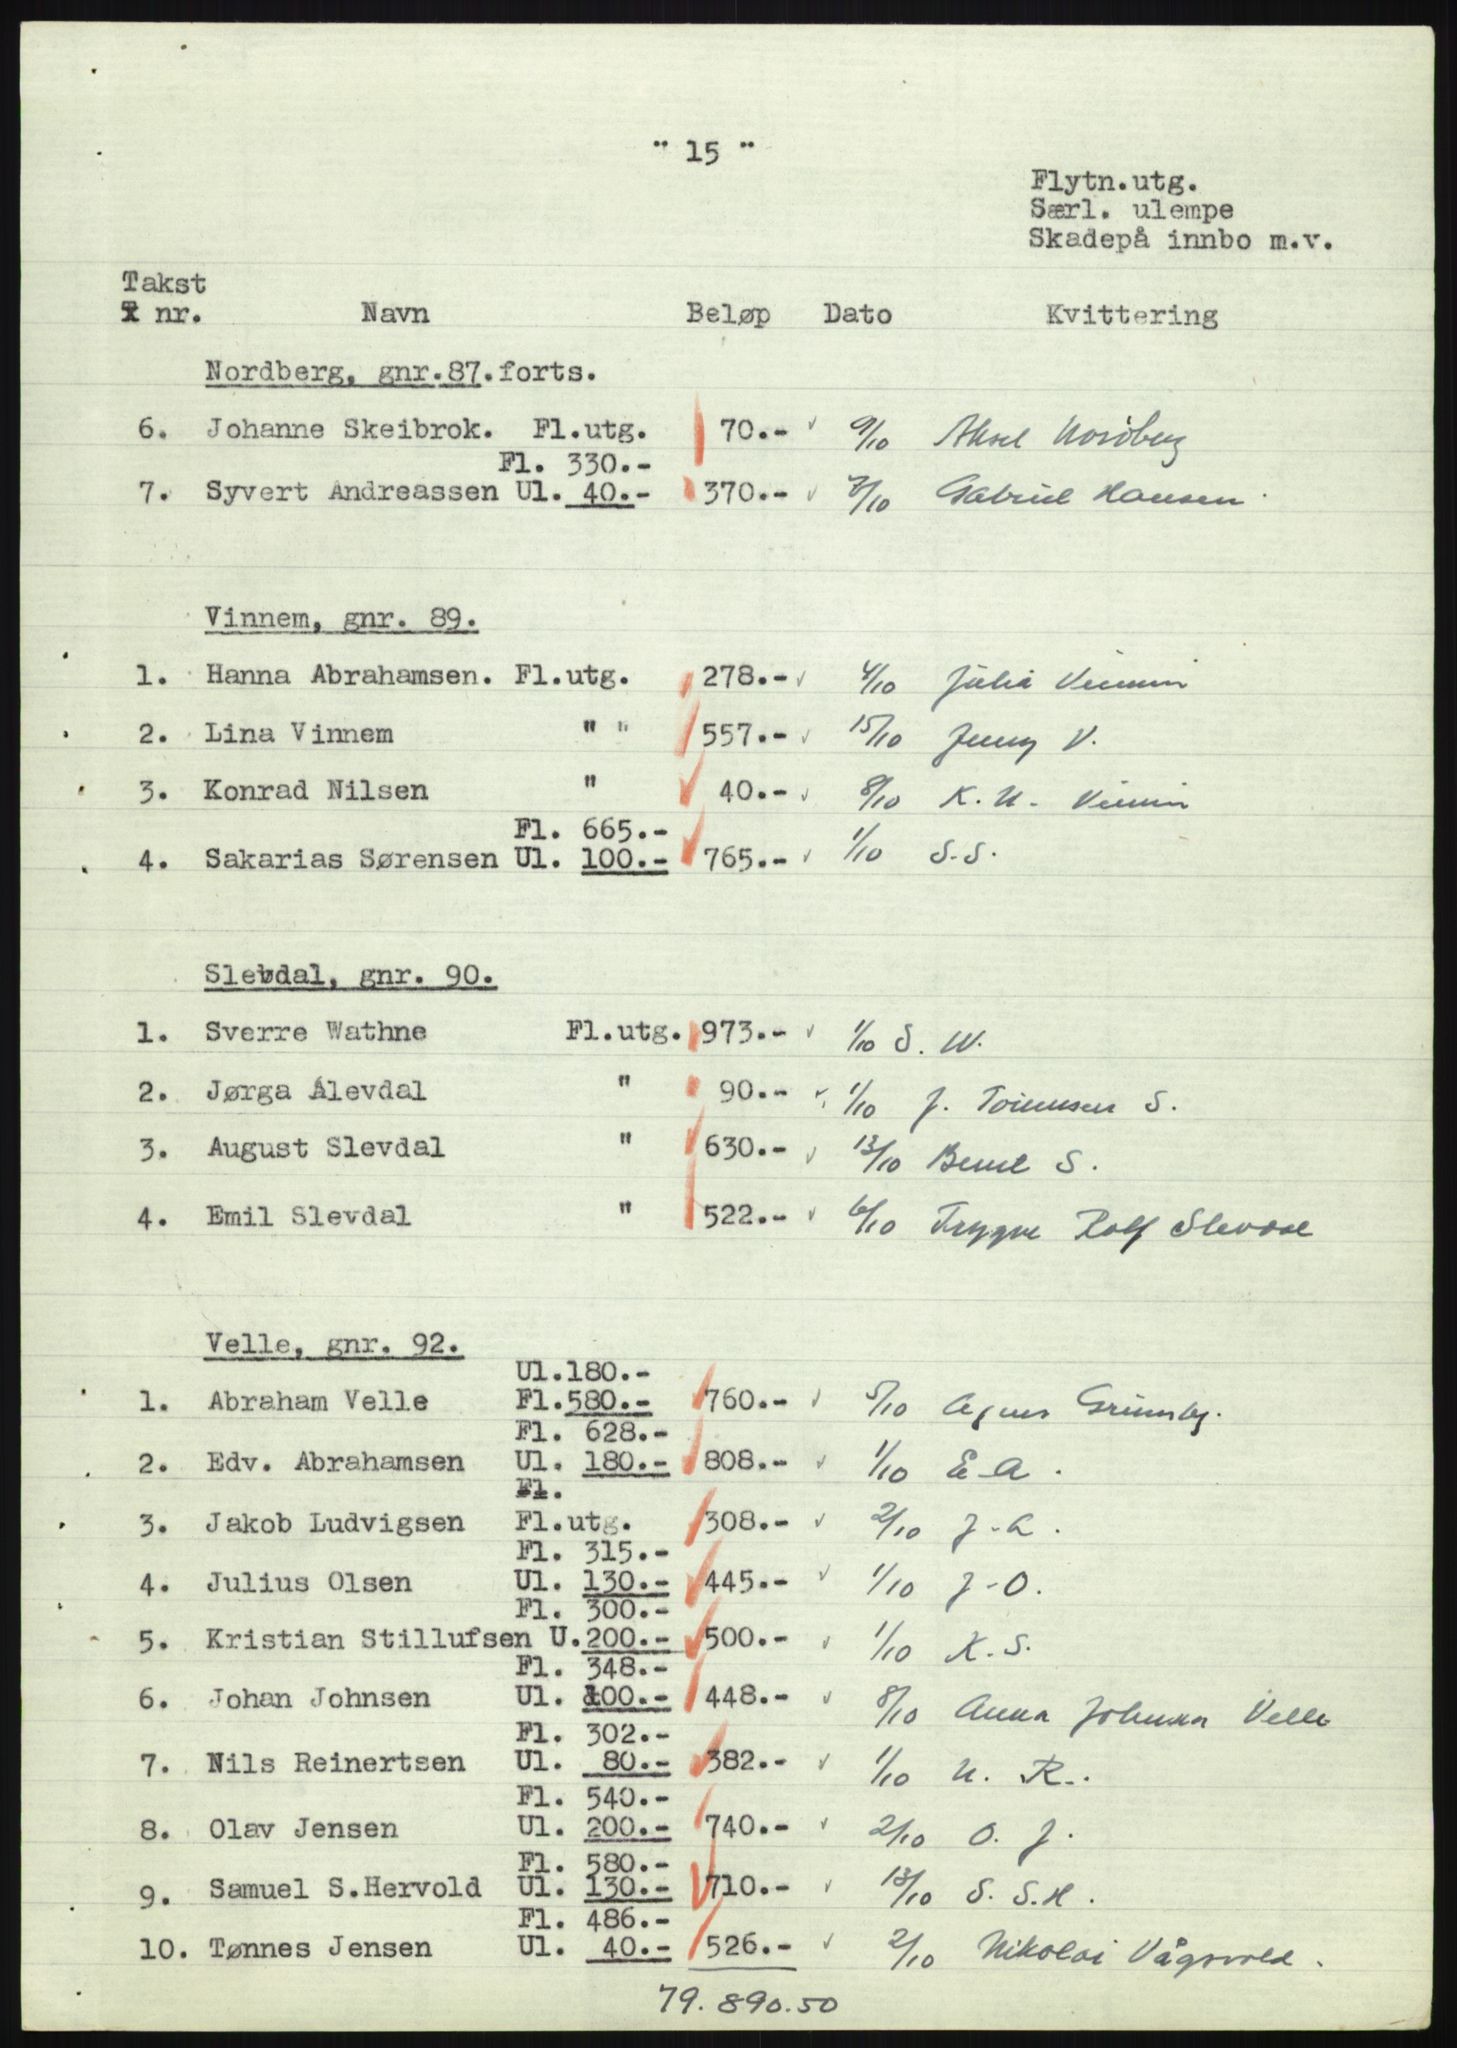 " 15 "
Flytn.utg.
Særl. ulempe
Skadepå innbo m.v.
Takst
nr. Navn Beløp Dato Kvittering
Nordberg, gnr. 87. forts.
6. Johanne Skeibrok. Fl.utg. 70.- 9/10 Aksel Nordberg
Fl. 330.-
7. Syvert Andreassen Ul. 40.- 370.- 7/10 Gabriel Hansen
Vinnem, gnr. 89.
1. Hanna Abrahamsen. Fl.utg. 278.- 4/10 Julia Vinnem
2. Lina Vinnem " " 557.- 15/10 Jenny V.
3. Konrad Nilsen " 40.- 8/10 K. N. Vinnem
Fl. 665.-
4. Sakarias Sørensen Ul. 100.- 765.- 1/10 S.S.
Slevdal, gnr. 90.
1. Sverre Wathne Fl.utg. 973.- 1/10 S. W.
2. Jørga Ålevdal " 90.- 1/10 J. S.
3. August Slevdal " 630.- 13/10 Bernt S.
4. Emil Slevdal " 522.- 6/10 Trygve Rolf Slevdal
Velle, gnr. 92.
Ul.180.-
1. Abraham Velle Fl.580.- 760.- 5/10 Agnes Grimsby.
Fl. 628.-
2. Edv. Abrahamsen Ul. 180.- 808.- 1/10 E-A.
Fl.
3. Jakob Ludvigsen Fl.utg. 308.- 2/10 J-L.
Fl. 315.-
4. Julius Olsen Ul. 130.- 445.- 1/10 J-O.
Fl. 300.-
5. Kristian Stillufsen U.200.- 500.- 1/10 K.S.
Fl. 348.-
6. Johan Johnsen Ul. 100.- 448.- 8/10 Anna Johnsen Velle
Fl. 302.-
7. Nils Reinertsen Ul. 80.- 382.- 1/10 N. R.
Fl. 540.-
8. Olav Jensen Ul. 200.- 740.- 2/10 O. J.
Fl. 580.-
9. Samuel S.Hervold Ul. 130.- 710.- 13/10 S. S.H.
Fl. 486.-
10. Tønnes Jensen Ul. 40.- 526.- 2/10 Nikolai Vågsvold.
79.890.50